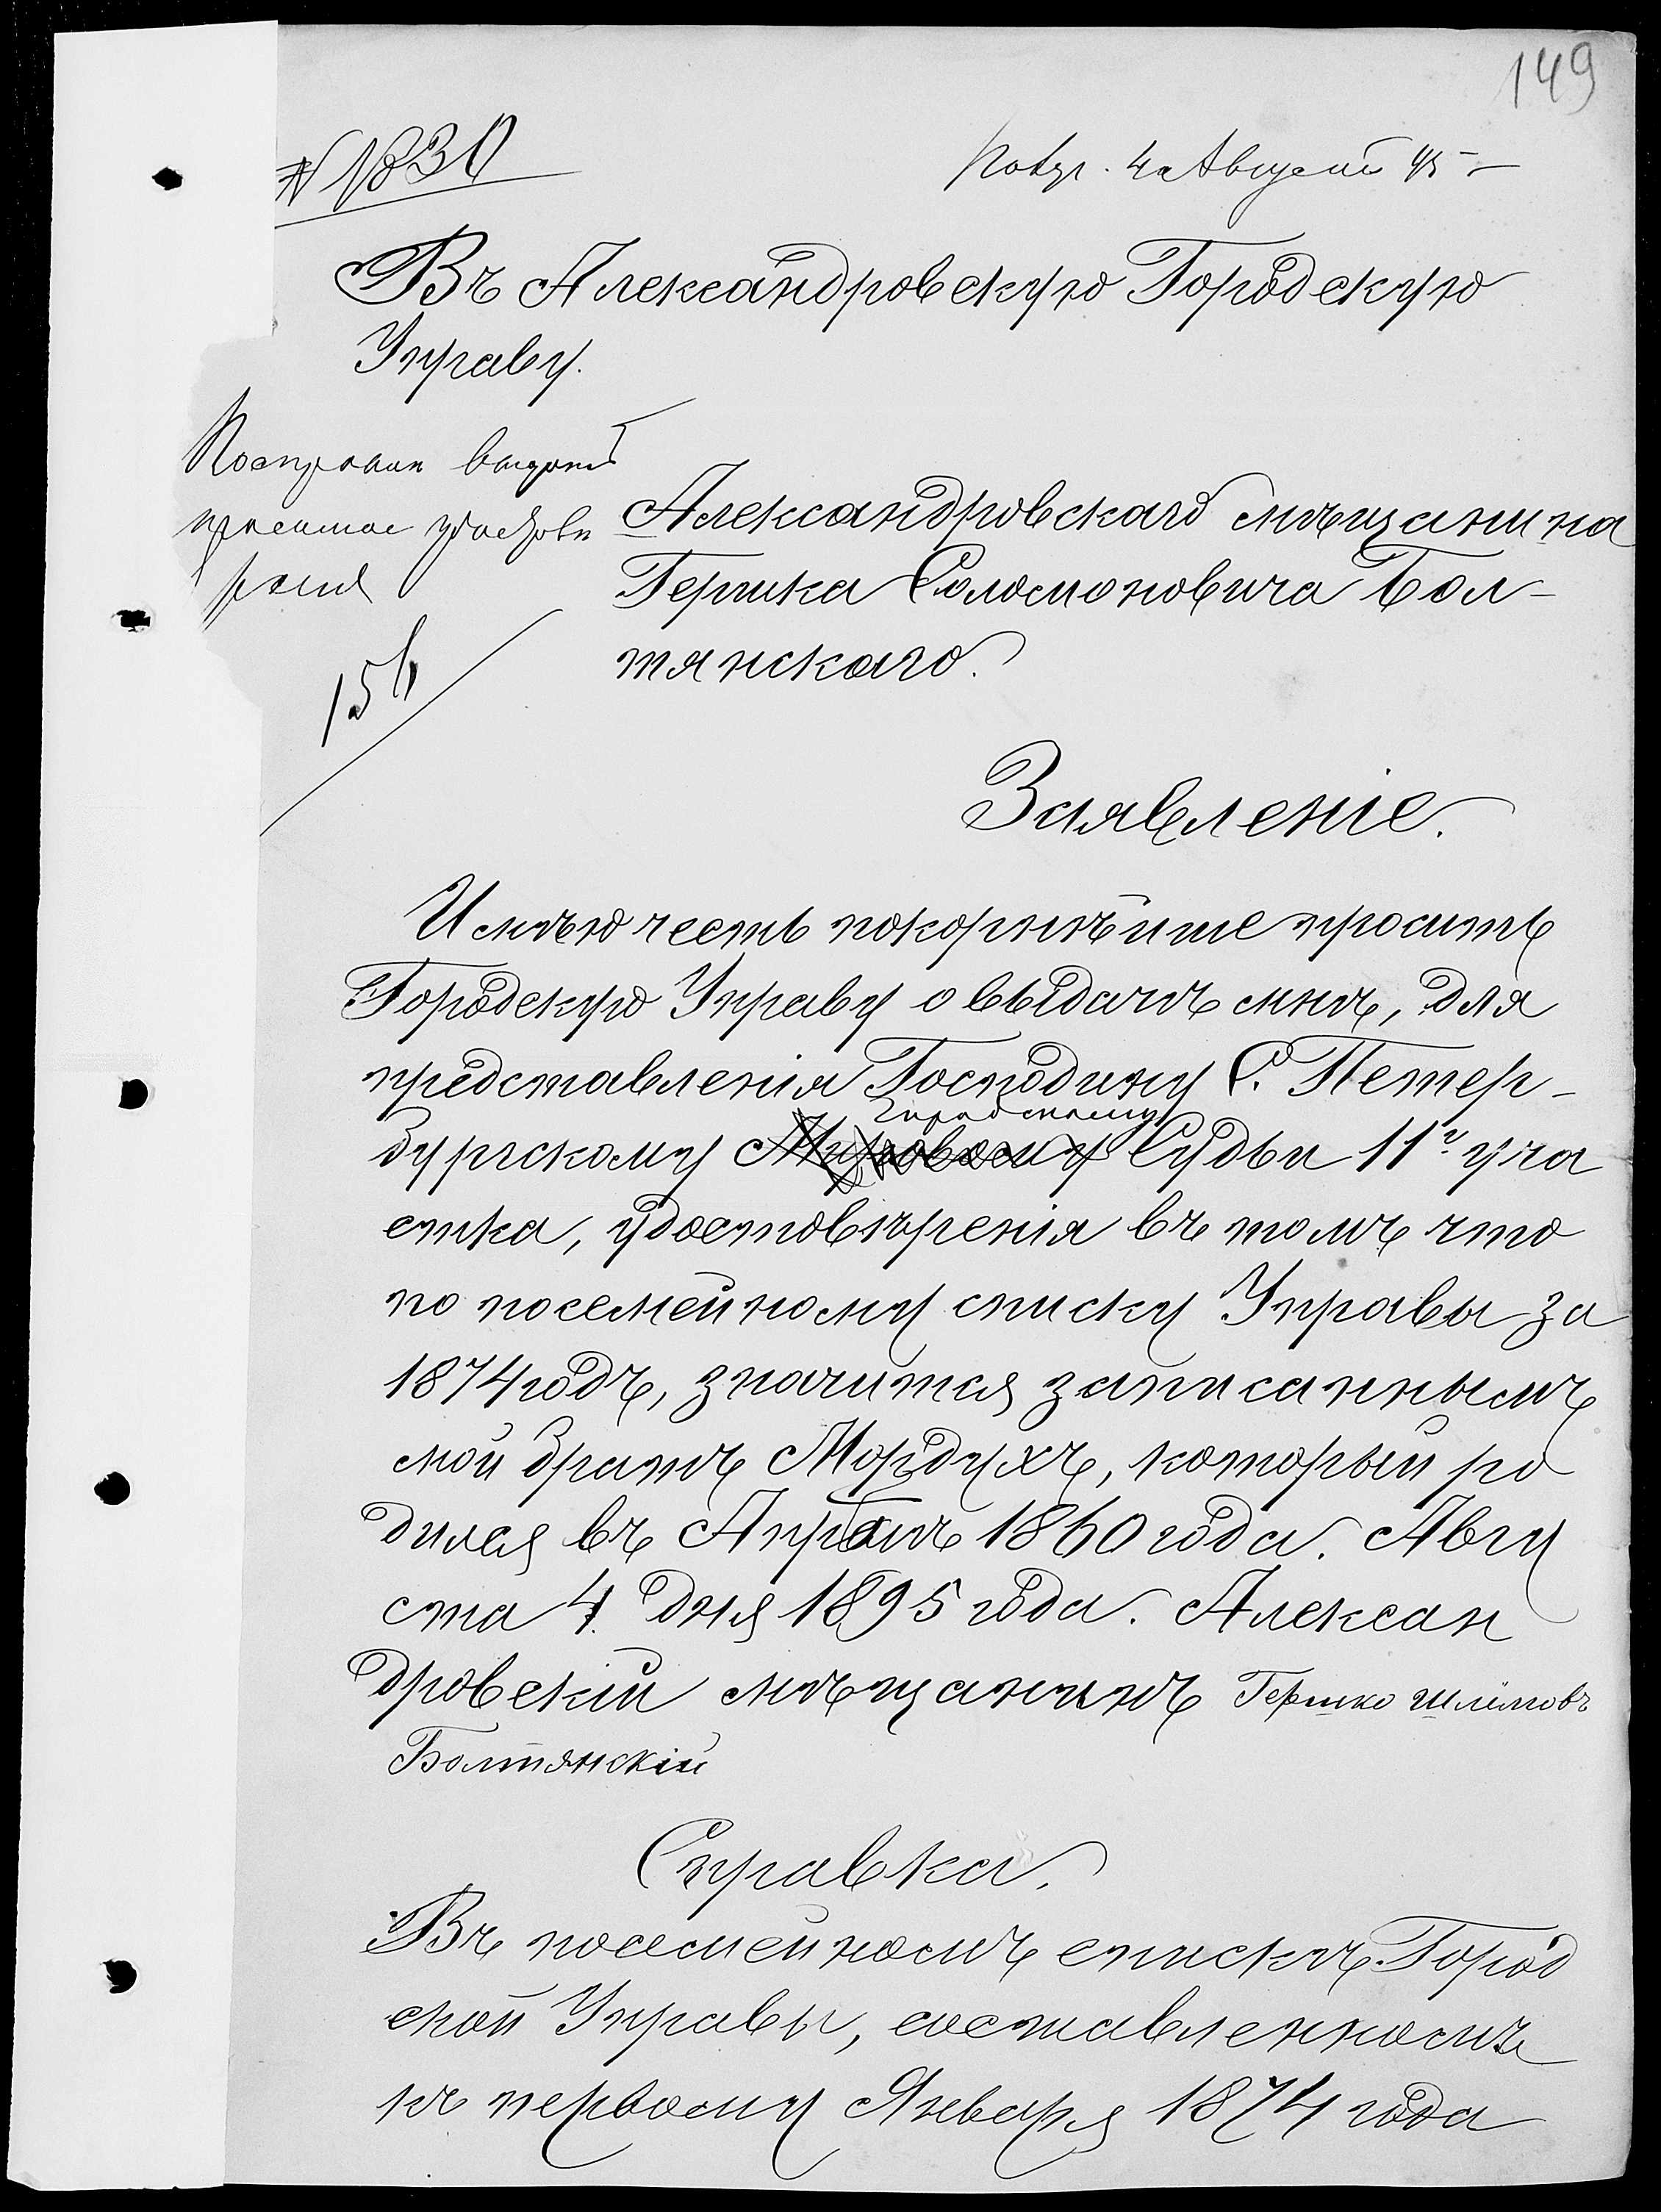 149
№ 1830
Получ. 4 Августа 95
Въ Александровскую Городскую
Управу.
выдать
просимое удостовѣ
реніе
Александровскаго мѣщанина
Гершка Соломоновича Бол-
тянскаго.
Заявленіе.
Имѣю честь покорнѣйше просить
Городскую Управу о выдачѣ мнѣ, для
представленія Господину С. Петер-
Городскому
бургскому Мировому Судьи 11го уча
стка, удостовѣренія въ томъ что
по посемейному списку Управы за
1874 годъ, значится записаннымъ
мой братъ Мордухъ, который ро
дился въ Апрѣлѣ 1860 года. Авгу
ста 4 дня 1895 года. Алексан
дровскій мѣщанинъ Гершко Шлiомовъ
Болтянскій
Справка.
Въ посемейномъ спискѣ Город
ской Управы, составленномъ
къ первому Января 1874 года